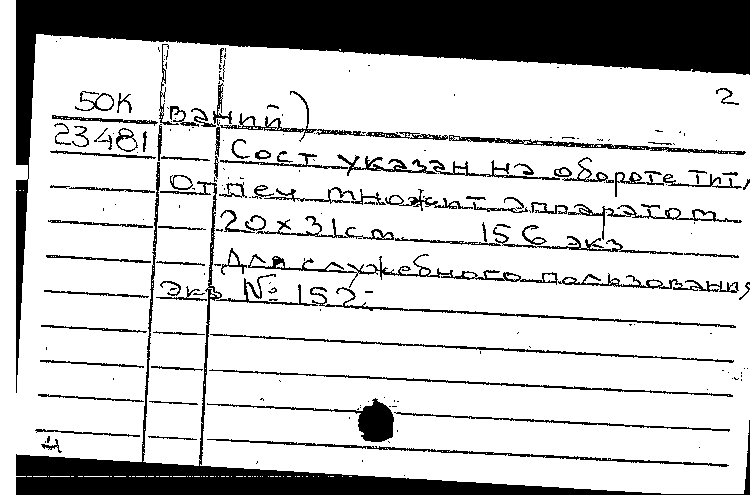 2
50К ваний)
23481 Сост указан на обороте тит,
Отпеч множит аппаратом
20×31см 156 экз
Для служебного пользования
экз № 152